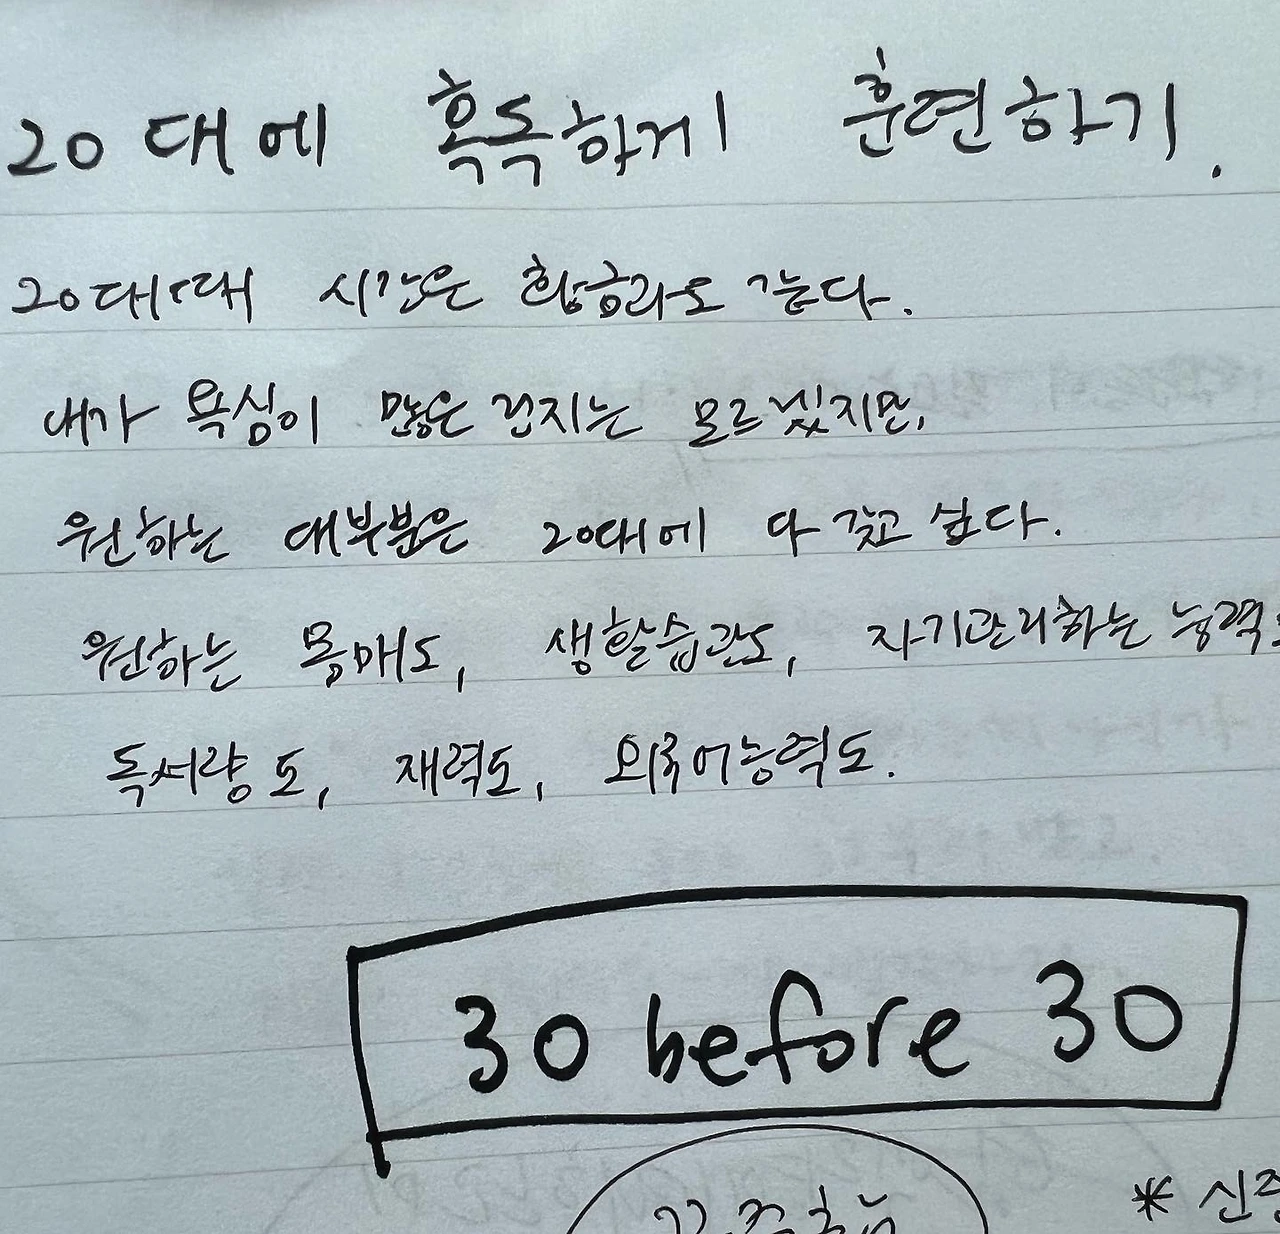 20대에 혹독하게 훈련하기.
20대때 시간은 황금과도 같다.
내가 욕심이 많은건지는 모르겠지만,
원하는 대부분은 20대에 다 갖고 싶다.
원하는 몸매도, 생활습관도, 자기관리하는 능력도
독서량도, 재력도, 외국어능력도.
30 before 30
*